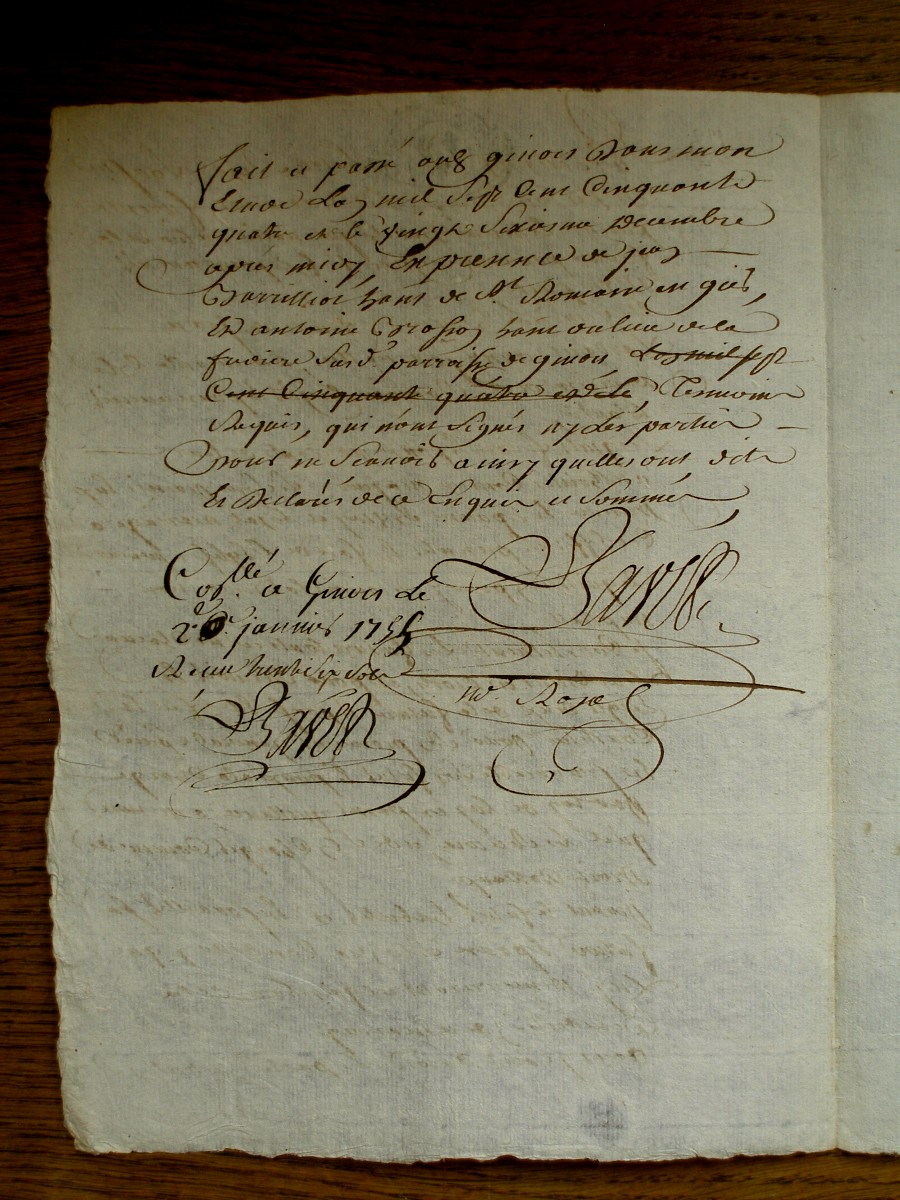 fait et passé aud ginois dans mon
Etude L'an mil sept Cent Cinquante
quatre et le vingt sixiesme decembre
apres midy, En presence de jean
habt de St Romain en giès,
Et antoine habt au lieu de la
susd. parroisse de ginois, L'an mil sept
Cent Cinquante quatre et le, Temoins
Requis, qui n'ont signés ny les parties
pour ne scavoir ainsy quelles ont dit
Et Declarés de ce Enquis et Sommés
Collé a Ginois Le
janvier 1755
Receu trente six sols
nre Royal